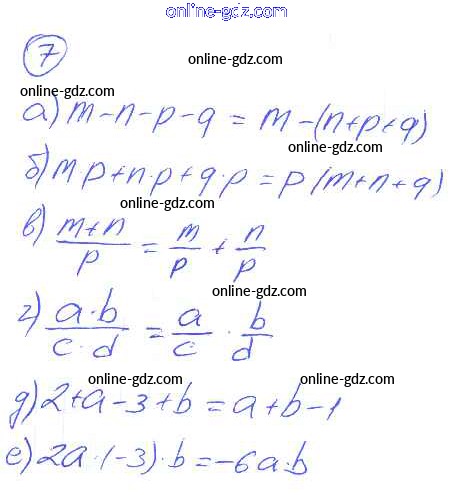 online-gdz.com
7
online-gdz.com
online-gdz.com
а) m - n - p - q = m - (n + p + q)
online-gdz.com
б) m p + n · p + q · p = p (m + n + q)
online-gdz.com
в) (m + n)/p = m/p + n/p
online-gdz.com
online-gdz.com
г) (a · b)/(c · d) = a/c · b/d
online-gdz.com online-gdz.com
д) 2 + a - 3 + b = a + b - 1
online-gdz.com
е) 2a · (-3) · b = -6a·b